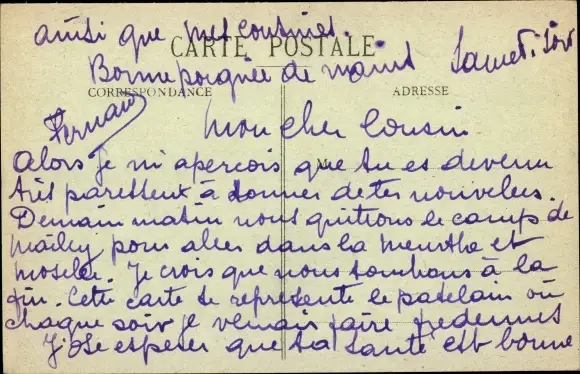 ainsi que mes cousines.
CARTE POSTALE
Bonne poignée de mains Samedi soir
CORRESPONDANCE ADRESSE
Fernand
Mon cher Cousin
Alors je m'apercois que tu es devenu
très paresseux à donner de tes nouvelles.
Demain matin nous quittons le camp de
Mailly pour aller dans la Meurthe et
Moselle. Je crois que nous tombons à la
fin. Cette carte te représente le patelain où
chaque soir je venais faire
J'ose espérer que ta santé est bonne